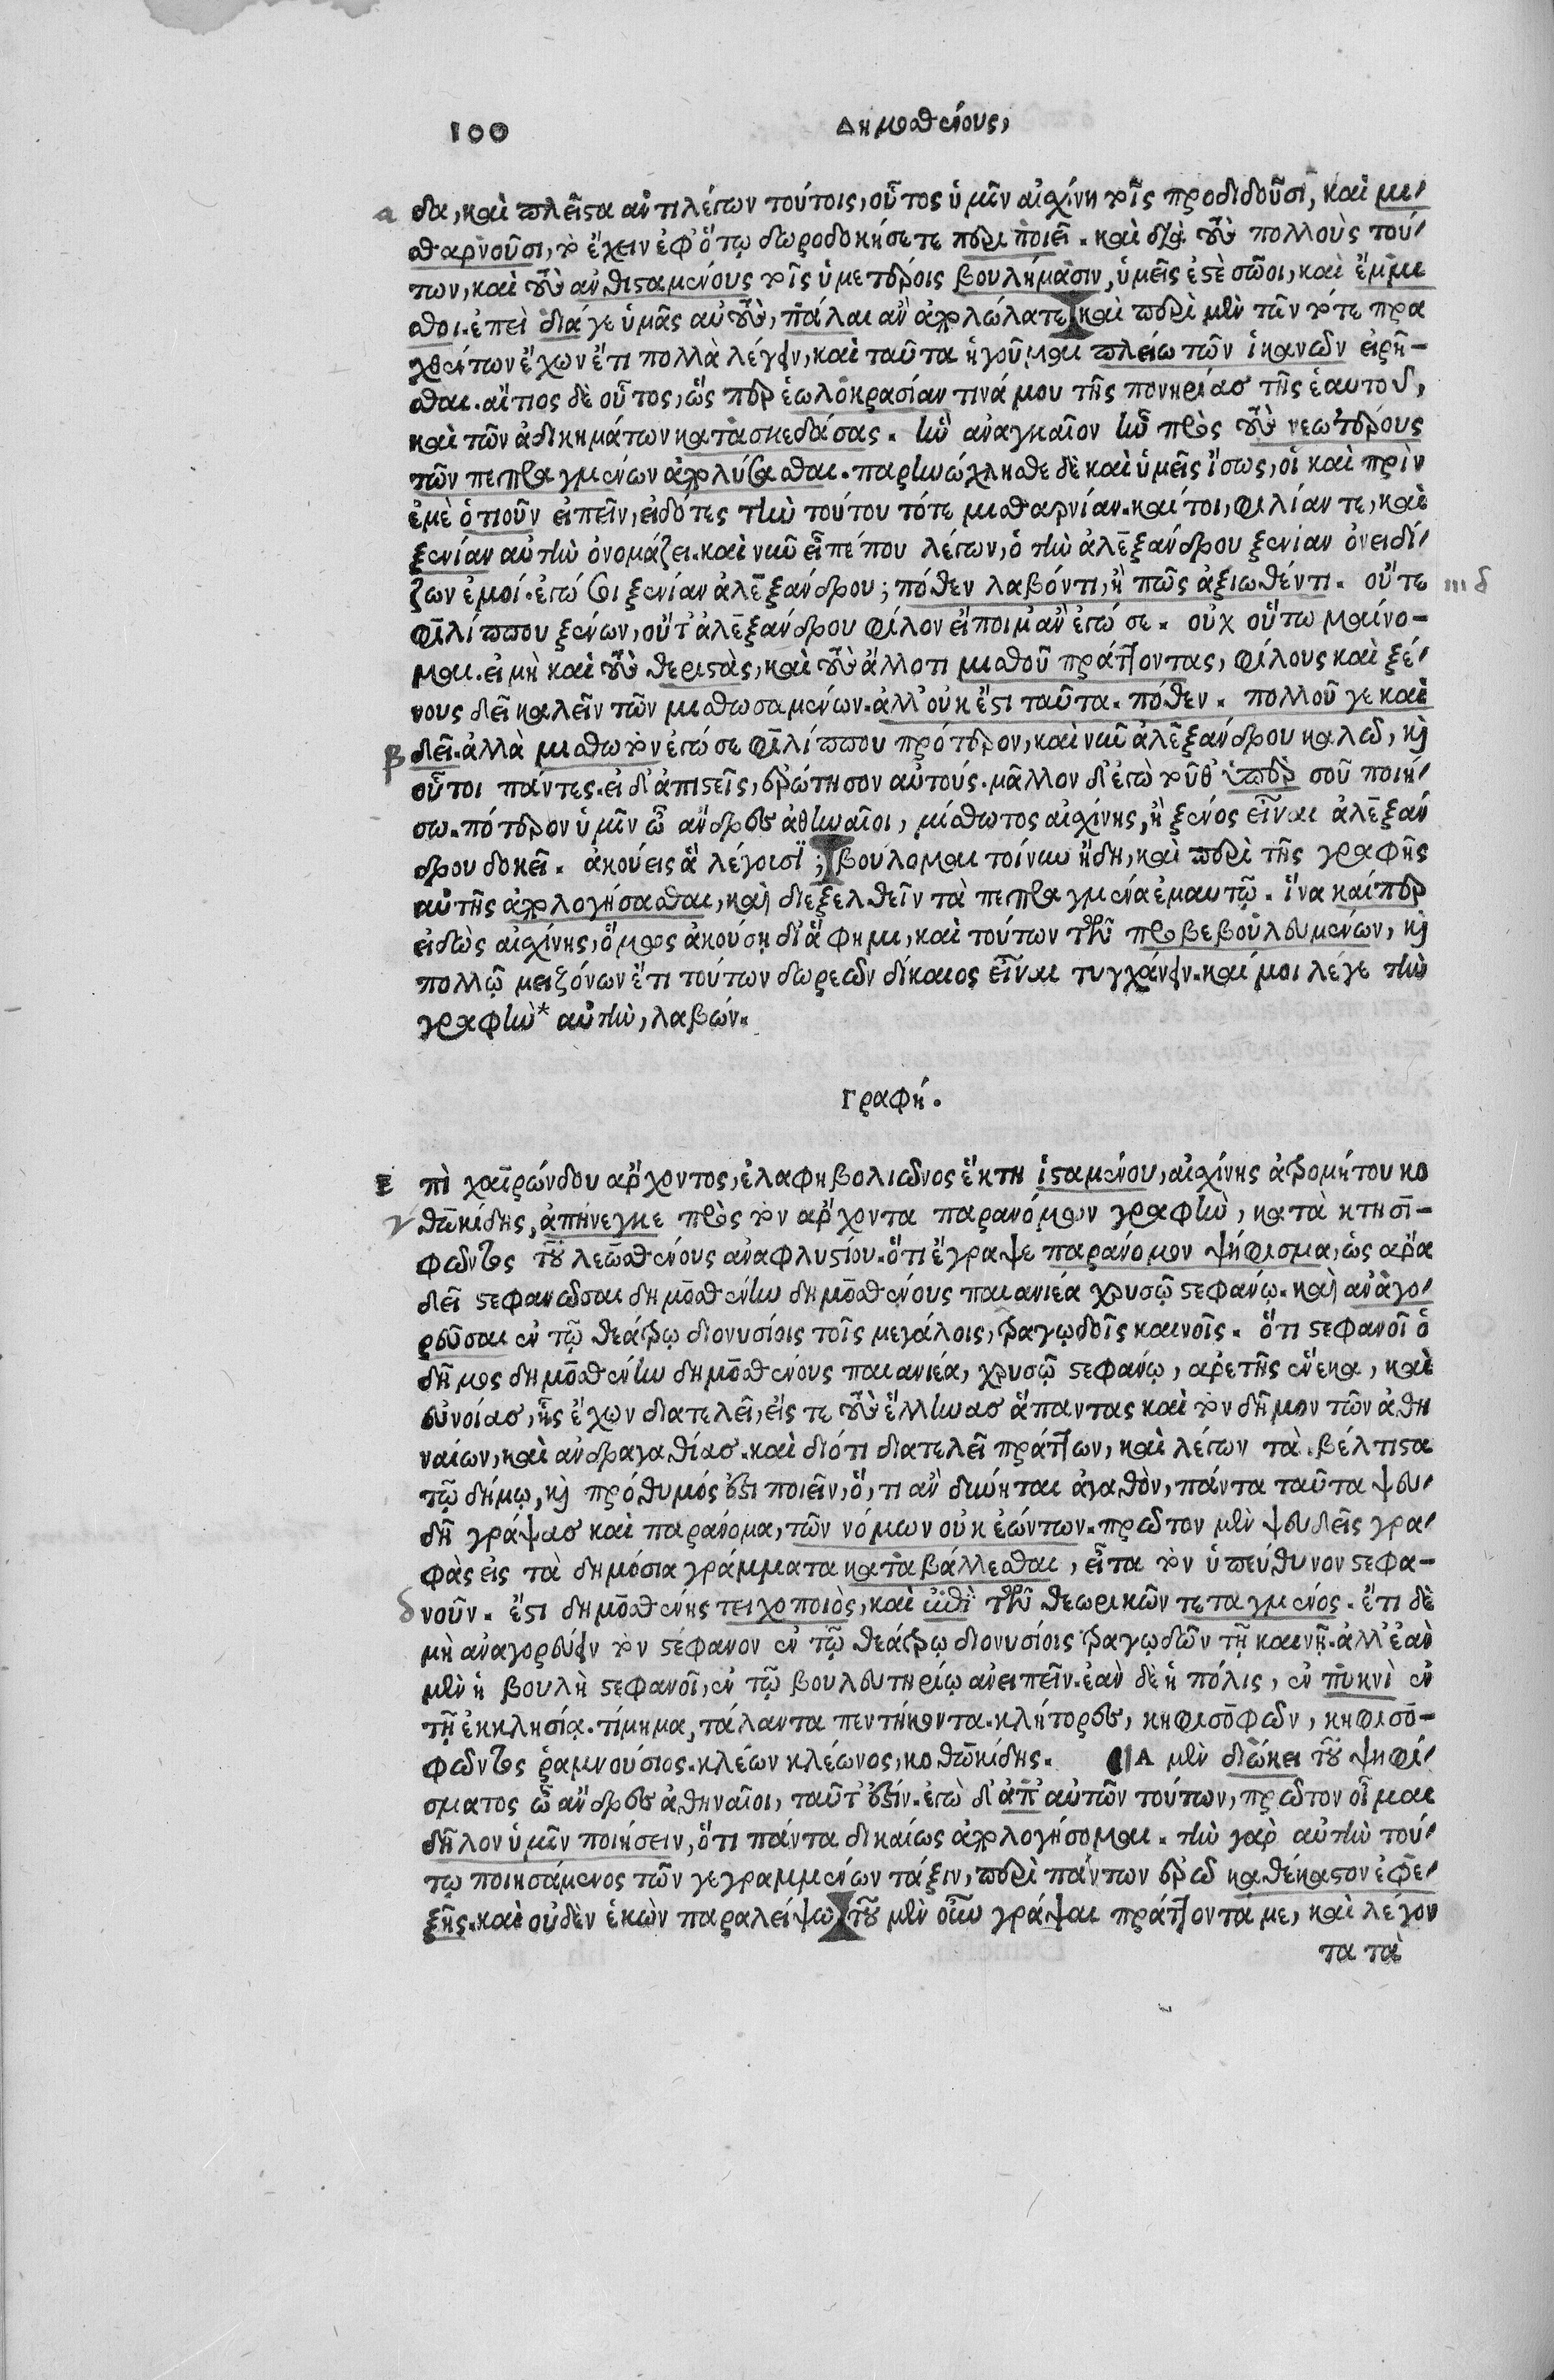 100 Δημοσθένους,
α δα, καὶ πλεῖστα ἀντιλέγων τούτοις, οὗτος ὑμῖν αἰσχίνη τοῖς προδιδοῦσι, καὶ μι-
σθαρνοῦσι, τὸ ἔχειν ἐφ' ὅτῳ δωροδοκήσετε περιποιεῖ. καὶ διὰ τοὺς πολλοὺς τού-
των, καὶ τοὺς ἀνθισταμένους τοῖς ὑμετέροις βουλήμασιν, ὑμεῖς ἐστὲ σῶοι, καὶ ἔμμι
σθοι. ἐπεὶ διά γε ὑμᾶς αὐτοὺς, πάλαι ἂν ἀπολώλατε καὶ περὶ μὲν τῶν τότε πρα
χθέντων ἔχων ἔτι πολλὰ λέγειν, καὶ ταῦτα ἡγοῦμαι πλείω τῶν ἱκανῶν εἰρῆ-
σθαι. αἴτιος δὲ οὗτος, ὥσπερ ἑωλοκρασίαν τινά μου τῆς πονηρίας τῆς ἑαυτοῦ,
καὶ τῶν ἀδικημάτων κατασκεδάσας. ἣν ἀναγκαῖον ἦν πρὸς τοὺς νεωτέρους
τῶν πεπραγμένων ἀπολύσασθαι. παρηνώχλησθε δὲ καὶ ὑμεῖς ἴσως, οἱ καὶ πρὶν
ἐμὲ ὁτιοῦν εἰπεῖν, εἰδότες τὴν τούτου τότε μισθαρνίαν. καίτοι, φιλίαν τε, καὶ
ξενίαν αὐτὴν ὀνομάζει. καὶ νῦν εἶπέ που λέγων, ὁ τὴν ἀλεξάνδρου ξενίαν ὀνειδί-
ζων ἐμοί. ἐγώ σοι ξενίαν ἀλεξάνδρου; πόθεν λαβόντι, ἢ πῶς ἀξιωθέντι. οὔτε
φιλίππου ξένων, οὔτ' ἀλεξάνδρου φίλον εἴποιμ' ἂν ἐγώ σε. οὐχ οὕτω μαίνο-
μαι. εἰ μὴ καὶ τοὺς θεριστὰς, καὶ τοὺς ἄλλοτι μισθοῦ πράττοντας, φίλους καὶ ξέ-
νους δεῖ καλεῖν τῶν μισθωσαμένων. ἀλλ' οὐκ ἔστι ταῦτα. πόθεν. πολλοῦ γε καὶ
β δεῖ. ἀλλὰ μισθωτὸν ἐγώ σε φιλίππου πρότερον, καὶ νῦν ἀλεξάνδρου καλῶ, καὶ
οὗτοι πάντες. εἰ δ' ἀπιστεῖς, ἐρώτησον αὐτούς. μᾶλλον δ' ἐγὼ τοῦθ' ὑπὲρ σοῦ ποιή-
σω. πότερον ὑμῖν ὦ ἄνδρες ἀθηναῖοι, μίσθωτος αἰσχίνης, ἢ ξένος εἶναι ἀλεξάν
δρου δοκεῖ. ἀκούεις ἃ λέγουσι; βούλομαι τοίνυν ἤδη, καὶ περὶ τῆς γραφῆς
αὐτῆς ἀπολογήσασθαι, καὶ διεξελθεῖν τὰ πεπραγμένα ἐμαυτῷ. ἵνα καίπερ
εἰδὼς αἰσχίνης, ὅμως ἀκούσῃ δι' ἅ φημι, καὶ τούτων τῶν προβεβουλευμένων, καὶ
πολλῷ μειζόνων ἔτι τούτων δωρεῶν δίκαιος εἶναι τυγχάνειν. καί μοι λέγε τὴν
γραφὴν* αὐτὴν, λαβών.
Γραφή.
Ε πὶ χαιρώνδου ἄρχοντος, ἐλαφηβολιῶνος ἕκτῃ ἱσταμένου, αἰσχίνης ἀτρομήτου κο
γ θωκίδης, ἀπήνεγκε πρὸς τὸν ἄρχοντα παρανόμων γραφὴν, κατὰ κτησι-
φῶντος τοῦ λεωσθένους ἀναφλυστίου. ὅτι ἔγραψε παράνομον ψήφισμα, ὡς ἄρα
δεῖ στεφανῶσαι δημοσθένην δημοσθένους παιανιέα χρυσῷ στεφάνῳ. καὶ ἀναγο-
ρεῦσαι ἐν τῷ θεάτρῳ διονυσίοις τοῖς μεγάλοις, τραγῳδοῖς καινοῖς. ὅτι στεφανοῖ ὁ
δῆμος δημοσθένην δημοσθένους παιανιέα, χρυσῷ στεφάνῳ, ἀρετῆς ἕνεκα, καὶ
εὐνοίας, ἧς ἔχων διατελεῖ, εἴς τε τοὺς ἕλληνας ἅπαντας καὶ τὸν δῆμον τῶν ἀθη
ναίων, καὶ ἀνδραγαθίας. καὶ διότι διατελεῖ πράττων, καὶ λέγων τὰ βέλτιστα
τῷ δήμῳ, καὶ πρόθυμός ἐστι ποιεῖν, ὅ, τι ἂν δύνηται ἀγαθὸν, πάντα ταῦτα ψευ-
δῆ γράψας καὶ παράνομα, τῶν νόμων οὐκ ἐώντων. πρῶτον μὲν ψευδεῖς γρα-
φὰς εἰς τὰ δημόσια γράμματα καταβάλλεσθαι, εἶτα τὸν ὑπεύθυνον στεφα-
δ νοῦν. ἔστι δημοσθένης τειχοποιὸς, καὶ ἐπὶ τῶν θεωρικῶν τεταγμένος. ἔτι δὲ
μὴ ἀναγορεύειν τὸν στέφανον ἐν τῷ θεάτρῳ διονυσίοις τραγῳδῶν τῇ καινῇ. ἀλλ' ἐὰν
μὲν ἡ βουλὴ στεφανοῖ, ἐν τῷ βουλευτηρίῳ ἀνειπεῖν. ἐὰν δὲ ἡ πόλις, ἐν πυκνὶ ἐν
τῇ ἐκκλησίᾳ. τίμημα, τάλαντα πεντήκοντα. κλήτορες, κηφισοφῶν, κηφισο-
φῶντος ῥαμνούσιος. κλέων κλέωνος, κοθωκίδης. Α μὲν διώκει τοῦ ψηφί-
σματος ὦ ἄνδρες ἀθηναῖοι, ταῦτ' ἐστίν. ἐγὼ δ' ἀπ' αὐτῶν τούτων, πρῶτον οἶμαι
δῆλον ὑμῖν ποιήσειν, ὅτι πάντα δικαίως ἀπολογήσομαι. τὴν γὰρ αὐτὴν τού-
τῳ ποιησάμενος τῶν γεγραμμένων τάξιν, περὶ πάντων ἐρῶ καθέκαστον ἐφε-
ξῆς. καὶ οὐδὲν ἑκὼν παραλείψω τοῦ μὲν οὖν γράψαι πράττοντά με, καὶ λέγον
τα τὰ